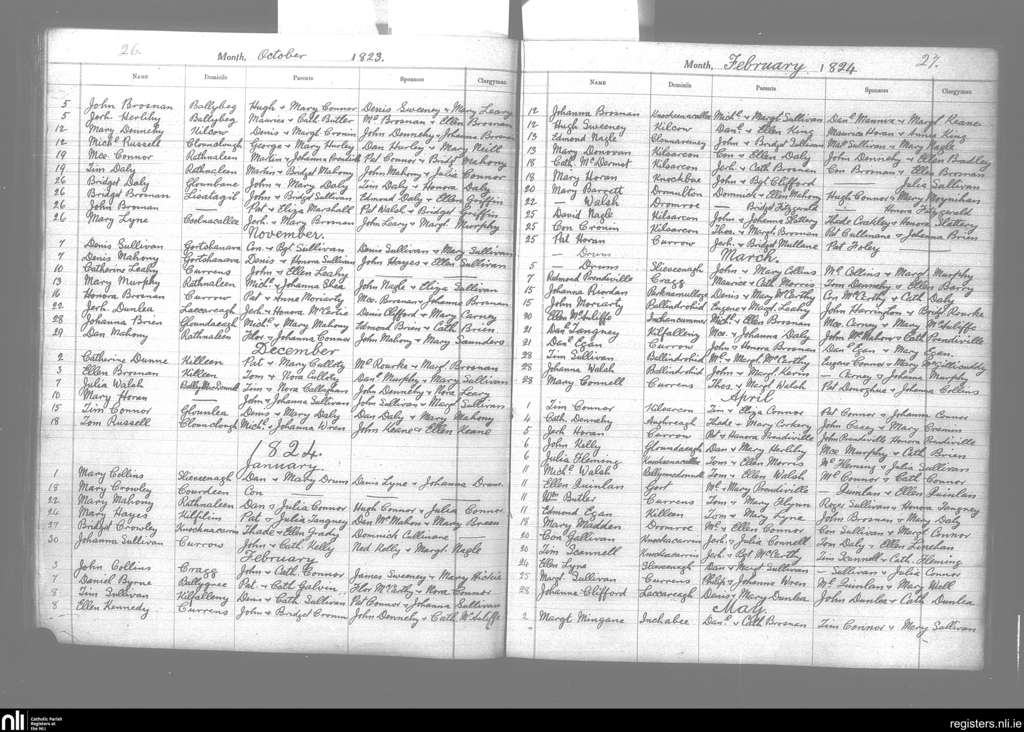 26.
Month, October 1823.
Name Domicile Parents Sponsors Clergyman
5 John Brosnan Ballybeg Hugh + Mary Connor Denis Sweeney + Mary Leary
5 Jerh. Herlihy Ballybeg Maurice + Cath Butler Wm Brosnan + Ellen Brosnan
12 Mary Dennehy Kilcow Denis + Margt Cronin John Dennehy + Johanna Brosnan
12 Michl. Russell Clounclough George + Mary Hurley Dan Hurley + Mary Neill
19 Mce. Connor Rathnaleen Martin + Johanna Pat Connor + Bridgt Mahony
19 Tim Daly Rathnaleen Marten + Bridget Mahony John Mahony + Julia Connor
26 Bridget Daly Glounbane John + Mary Daly Tim Daly + Honora Daly
26 Bridget Brosnan Lisalagit John + Bridgt Sullivan Edmond Daly + Ellen Griffin
26 John Brosnan Pat + Eliza Marshall Pat Walsh + Bridget Griffin
26 Mary Lyne Coolnacalles Jerh. + Mary Brosnan John Leary + Margt. Murphy
November.
7 Denis Sullivan Gortshanava Con. + Bgt Sullivan Denis Sullivan + Mary Sullivan
7 Denis Mahony Gortshanava Denis + Honora Sullivan John Hayes + Ellen Sullivan
10 Catherine Leahy Currens John + Ellen Leahy
13 Mary Murphy Rathnaleen Michl. + Johanna Shea John Nagle + Eliza Sullivan
16 Honora Brosnan Currow Pat + Anne Moriarty Mce. Brosnan + Johanna Brosnan
22 Jerh. Dunlea Laccareagh Jerh. + Honora McCarthy Denis Clifford + Mary Carney
28 Johanna Brien Gloundaeagh Michl. + Mary Mahony Edmond Brien + Cath Brien
29 Dan Mahony Rathnaleen Thos + Johanna Connor John Mahony + Mary Saunders
December
2 Catherine Dunne Killeen Pat + Mary Culloty Wm Rourke + Margt Brosnan
3 Ellen Brosnan Killeen Tom + Nora Culloty Danl. Murphy + Mary Sullivan
7 Julia Walsh Ballymacdonnell Tom + Nora Callaghan John Dennehy + Nora Leary
10 Mary Horan — John + Johanna Sullivan John Sullivan + Margt Sullivan
15 Tim Connor Glounlea Denis + Mary Daly Dan Daly + Mary Mahony
18 Tom Russell Clounclough Michl. + Johanna Wren John Keane + Ellen Keane
1824
January.
1 Mary Collins Slieveenagh Dan + Mary Drum Denis Lyne + Johanna Drum
18 Mary Crowley Courdeen Con —
22 Mary Mahony Rathnaleen Dan + Julia Connor Hugh Connor + Julia Connor
26 Mary Hayes Kilfilin Pat + Julia Tangney Dan McMahon + Mary Breen
27 Bridget Crowley Knocknacurra Thade + Ellen Grady Dominick Cullinane —
30 Johanna Sullivan Currow John + Cath Kelly Ned Kelly + Margt. Nagle
February
3 John Collins Cragg John + Cath Connor James Sweeney + Mary Hickie
7 Daniel Byrne Ballygree Pat + Cath Galvin Flor McCarthy + Nora Connor
8 Tim Sullivan Kilfalleny Denis + Cath Sullivan Pat Connor + Johanna Sullivan
8 Ellen Kennedy Currens John + Bridget Cronin John Dennehy + Cath McAuliffe
27.
Month, February 1824
Name Domicile Parents Sponsors Clergyman
12 Johanna Brosnan Knockeencalles Michl. + Margt Sullivan Danl. Warren + Margt Keane
12 Hugh Sweeney Kilcow Danl. + Ellen King Maurice Horan + Anne King
13 Edmond Nagle John + Bridget Sullivan Matt Sullivan + Mary Nagle
13 Mary Donovan Kilsarcon Con + Ellen Daly John Dennehy + Ellen Bradley
18 Cath McDermot Kilsarcon Jerh. + Cath Brosnan Con Brosnan + Ellen Brosnan
18 Mary Horan Knockbue John + Bgt Clifford Julia Sullivan
20 Mary Barrett Dromulton Dominick + Ellen Mahony Hugh Connor + Mary Moynihan
22 — Walsh Dromroe — Bridget Fitzgerald Honora Fitzgerald
25 David Nagle Kilsarcon John + Johanna Slattery Thade Coakley + Honora Slattery
25 Con Cronin Kilsarcon Thos. + Margt Brosnan Pat Cullinane + Johanna Brien
25 Pat Horan Currow Jerh + Bridget Mullane Pat Foley —
— Drum
March.
5 — Drum Slieveenagh John + Mary Collins Wm Collins + Margt Murphy
7 Redmond Prendiville Cragg Maurice + Cath Morris Tom Dennehy + Ellen Barry
15 Johanna Riordan Denis + Mary McCarthy Con McCarthy + Cath Daly
15 John Moriarty Ballindrohid Eugene + Margt Leahy John Harrington + Bridgt Rourke
20 Ellen McAuliffe Michl. + Ellen Brosnan Mce. Carney + Mary McAuliffe
21 Danl. Tangney Kilfalliny Mce. + Johanna Daly John McMahon + Cath Prendiville
21 Danl. Egan Currow John + Honora Brosnan Dan Egan + Mary Egan
28 Tim Sullivan Ballindrohid Wm. + Margt McCarthy Eugene Connor + Mary McGillicuddy
28 Johanna Walsh Ballindrohid John + Margt Kerin — Carney + Johanna Murphy
28 Mary Connell Currens Thos. + Margt Walsh Pat Donoghue + Johanna Collins
April
4 Tim Connor Kilsarcon Tim + Eliza Connor Pat Connor + Johanna Connor
4 Cath. Dennehy Anghreagh Thade + Mary Corkery John Casey + Mary Cronin
5 Jerh Horan Currow Pat + Honora Prendiville John Prendiville Honora Prendiville
6 John Kelly Gloundaeagh Dan + Mary Herlihy Mce Murphy + Cath Brien
6 Julia Fleming Knockeencalles Tom + Ellen Morris Wm Fleming + Julia Sullivan
11 Michl. Walsh Ballymacdonnell Tom + Ellen Walsh Wm Connor + Cath Connor
11 Ellen Quinlan Gort Wm + Mary Prendiville — Quinlan + Ellen Quinlan
11 Wm Butler Currens Tom + Mary Flynn Roger Sullivan + Honora Tangney
11 Edmond Egan Killeen Tom + Mary Lyne John Brosnan + Mary Daly
18 Mary Madden Dromroe Wm. + Ellen Connor Con Sullivan + Margt Connor
20 Con Sullivan Knockacurra Jerh. + Julia Connell Tom Daly + Ellen Linehan
20 Tim Scannell Knockacurra Jerh + Bgt McCarthy Tim Scannell + Cath. Fleming
24 Ellen Lyne Slieveenagh Dan + Margt Sullivan — Sullivan + Julia Connor
25 Margt Sullivan Currens Philip + Johanna Wren Wm Quinlan + Mary Well
28 Johanna Clifford Laccareagh Denis + Mary Dunlea John Dunlea + Cath Dunlea
May.
2 Margt Mingane Inchabee Danl. + Cath Brosnan Tim Connor + Mary Sullivan
nli
Catholic Parish
Registers at
the NLI
registers.nli.ie